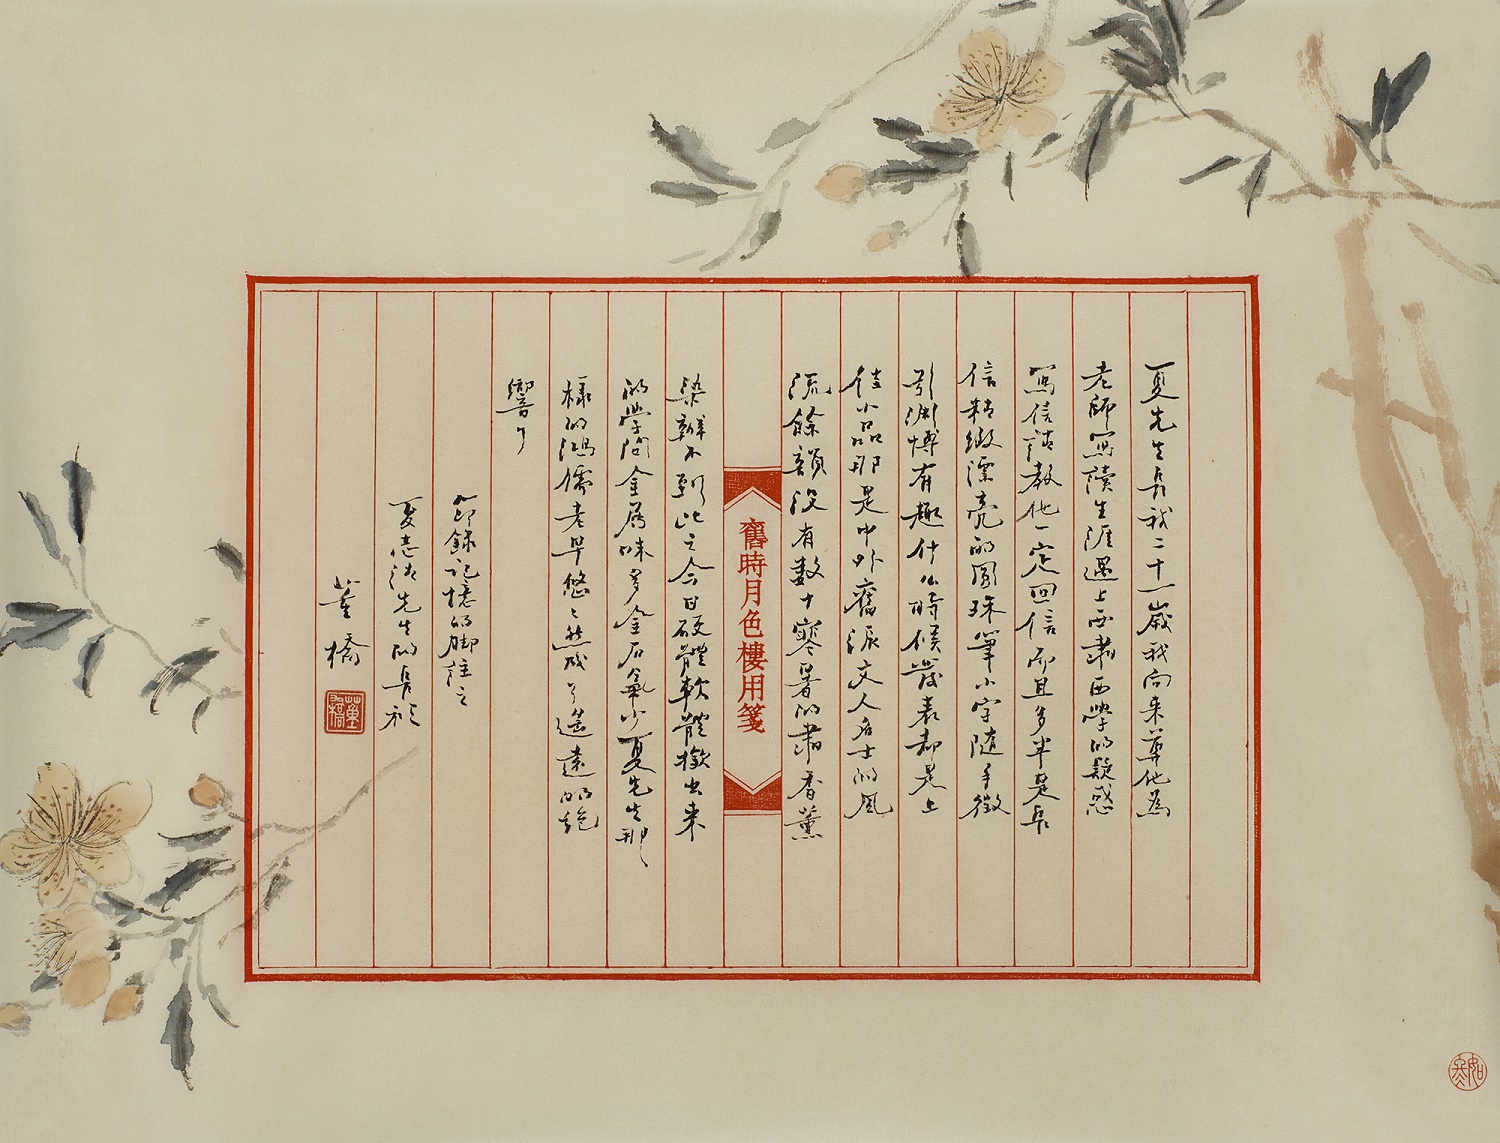 夏先生長我二十一歲我向來尊他為
老師寫讀生涯遇上西書西學的疑惑
寫信請教他一定回信而且多半是長
信精緻漂亮的圓珠筆小字隨手徵
引淵博有趣什么時候發表都是上
佳小品那是中外舊派文人名士的風
流餘韻沒有數十寒暑的書香薰
舊時月色樓用箋
染辦不到此之今日硬體軟體撳出來
的學問金屬味多金石氣少夏先生那
樣的鴻儒老早悠悠然成了遙遠的絕
響了
節錄記憶的腳註之
夏志清先生的長札
董橋
董橋